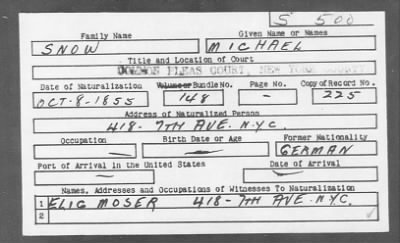 S 500
Family Name Given Name or Names
SNOW MICHAEL
Title and Location of Court
COMMON PLEAS COURT, NEW YORK COUNTY
Date of Naturalization Volume or Bundle No. Page No. Copy of Record No.
OCT-8-1855 148 - 225
Address of Naturalized Person
418-7TH AVE. N.Y.C.
Occupation Birth Date or Age Former Nationality
GERMAN
Port of Arrival in the United States Date of Arrival
Names, Addresses and Occupations of Witnesses To Naturalization
1 ELIG MOSER 418-7TH AVE. N.Y.C.
2